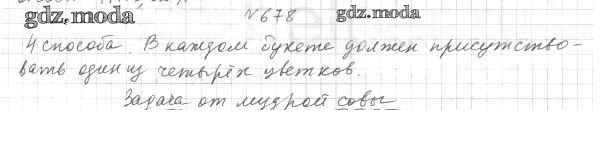 gdz.moda №678 gdz.moda
4 способа. В каждом букете должен присутство-
вать один из четырёх цветков.
Задача от мудрой совы